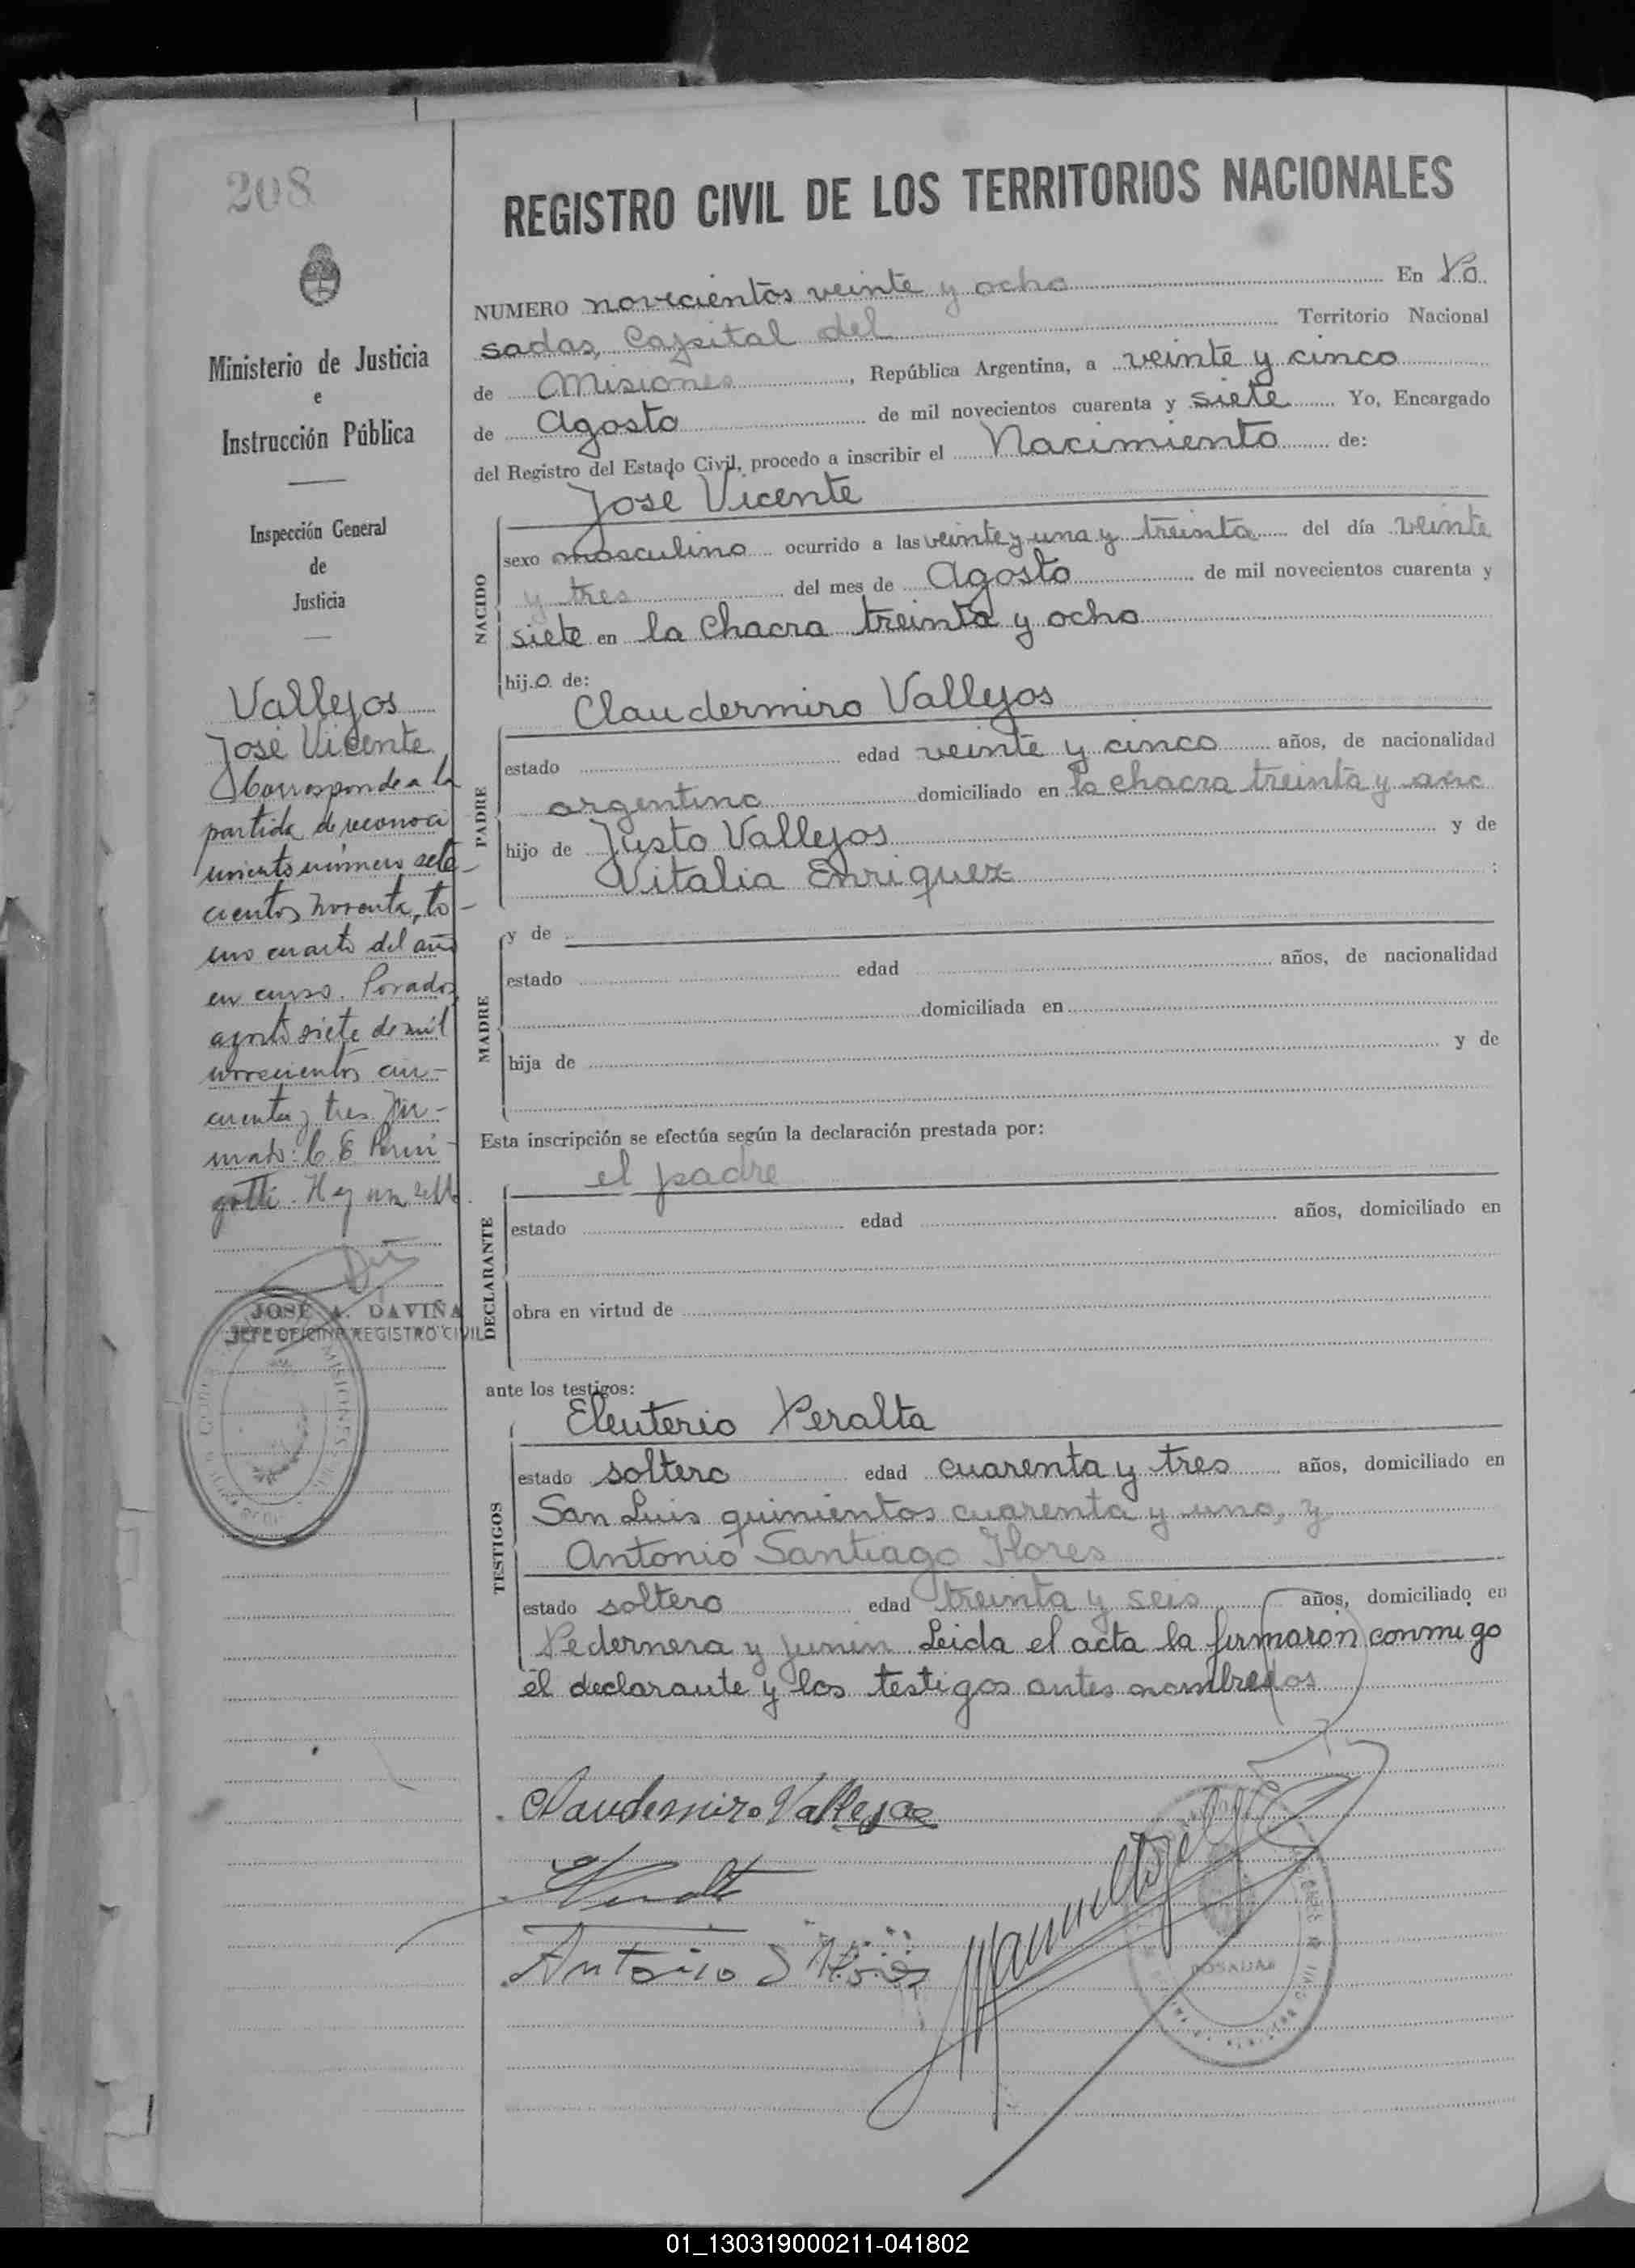 208
REGISTRO CIVIL DE LOS TERRITORIOS NACIONALES
Ministerio de Justicia
e
Instrucción Pública
Inspección General
de
Justicia
Vallejos
José Vicente
Corresponde a la
partida de reconoci
miento número sete
cientos noventa, to
mo cuarto del año
en curso. Posadas,
agosto siete de mil
novecientos cin-
cuenta y tres. Fir-
mado: C E
Hay un sello
JOSÉ A. DAVIÑA
JEFE OFICINA REGISTRO CIVIL
MISIONES
NUMERO novecientos veinte y ocho En Po
sadas, Capital del Territorio Nacional
de Misiones, República Argentina, a veinte y cinco
de Agosto de mil novecientos cuarenta y siete Yo, Encargado
del Registro del Estado Civil, procedo a inscribir el Nacimiento de:
NACIDO
Jose Vicente
sexo masculino ocurrido a las veinte y una y treinta del día veinte
y tres del mes de Agosto de mil novecientos cuarenta y
siete en la Chacra treinta y ocho
hijo de:
PADRE
Claudermiro Vallejos
estado edad veinte y cinco años, de nacionalidad
argentino domiciliado en la chacra treinta y
hijo de Justo Vallejos y de
Vitalia Enriquez :
MADRE
y de
estado edad años, de nacionalidad
domiciliada en
hija de y de
Esta inscripción se efectúa según la declaración prestada por:
DECLARANTE
el padre
estado edad años, domiciliado en
obra en virtud de
ante los testigos:
TESTIGOS
Eleuterio Peralta
estado soltero edad cuarenta y tres años, domiciliado en
San Luis quinientos cuarenta y uno, y
Antonio Santiago Flores
estado soltero edad treinta y seis años, domiciliado en
Pedernera y Junin Leida el acta la firmaron conmigo
el declarante y los testigos antes nombrados
Claudemiro Vallejos
Antonio S Flores
POSADAS
01_130319000211-041802